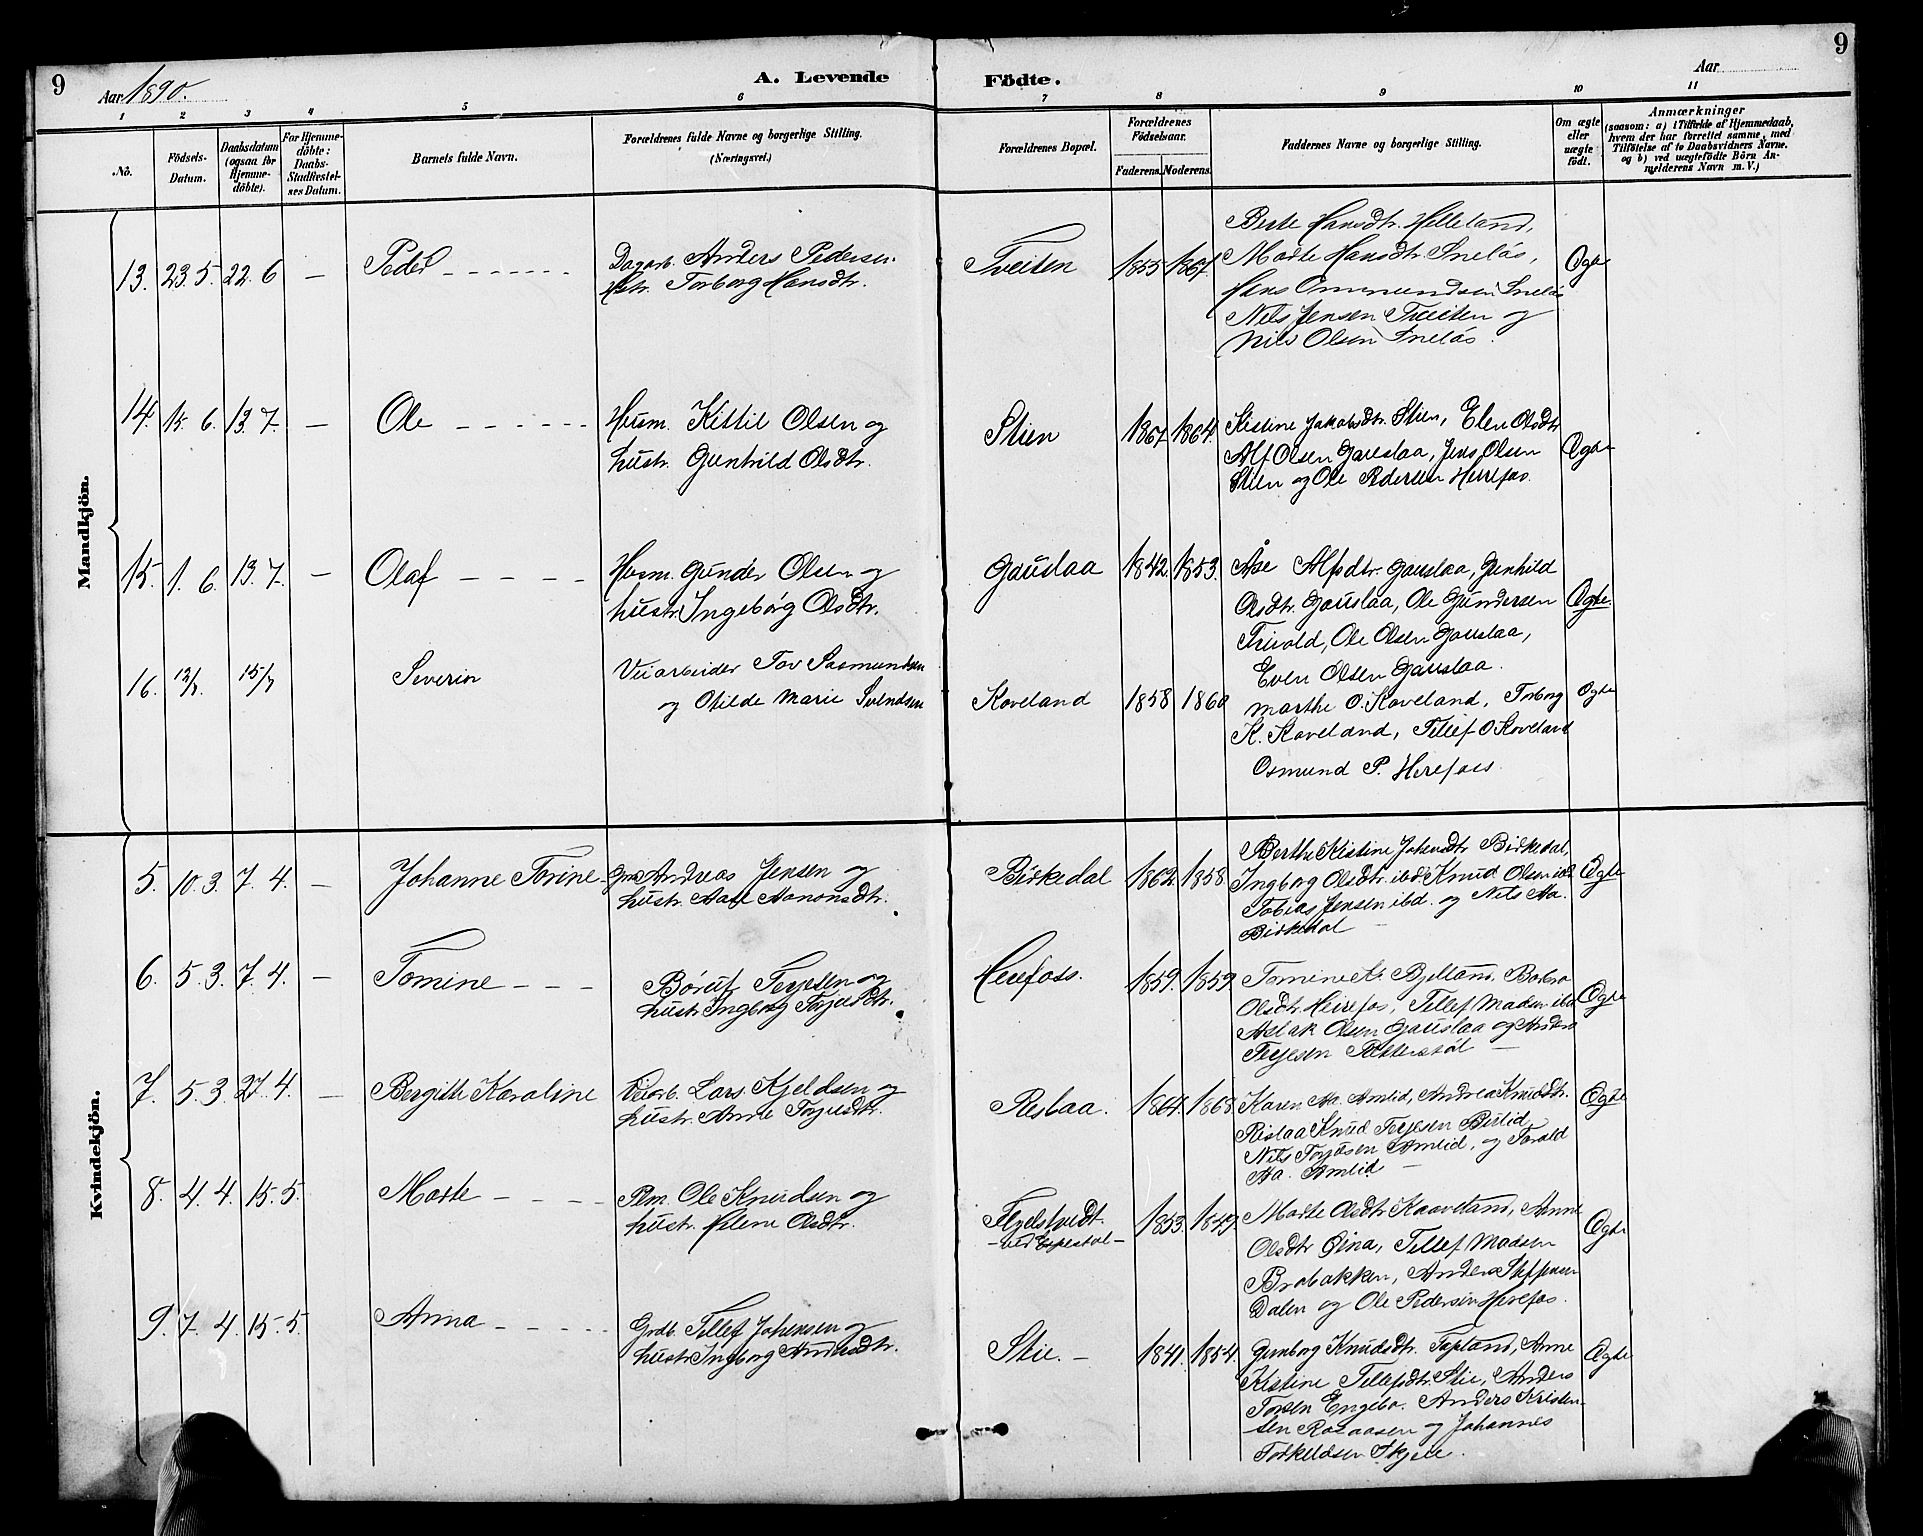 9
Aar 1890.
A. Levende Födte.
Aar
9
1
2
3
4
5
6
7
8
9
10
11
No.
Födsels-Datum.
Daabsdatum (ogsaa for Hjemmedöbte).
For Hjemmedöbte: Daabs-Stadfæstelses Datum.
Barnets fulde Navn.
Forældrenes fulde Navne og borgerlige Stilling.
(Næringsvei.)
Forældrenes Bopæl.
Forældrenes Födselsaar.
Faderens. Moderens.
Faddernes Navne og borgerlige Stilling.
Om ægte eller uægte födt.
Anmærkninger
(saasom: a) i Tilfælde af Hjemmedaab, hvem der har forrettet samme, med Tilföielse af to Daabsvidners Navne. og b) ved uægtefödte Börn Anmelderens Navn m. V.)
Mandkjön.
13. 23. 5. 22. 6 — Peder
Dagarb. Anders Pedersen
Hstr. Torborg Hansdtr.
Tveiten 1855 1867.
Berte Hansdtr. Helleland,
Marte Hansdtr. Sneløs,
Hans Ommundsen Sneløs
Nils Jensen Tveiten og
Nils Olsen Sneløs.
Ægte
14. 15. 6. 13. 7. — Ole
Husm. Kittil Olsen og
hustr. Gunhild Olsdtr.
Stien 1867. 1864.
Kistine Jakobsdtr. Stien, Elen Olsdtr
Alf Olsen Gauslaa, Jens Olsen
Stien og Ole Pedersen Herefos.
Ægte
15. 1. 6. 13. 7. — Olaf
Husm. Gunder Olsen og
hustr. Ingeborg Olsdtr.
Gauslaa 1842. 1853.
Åse Alfsdtr. Gauslaa, Gunhild
Olsdtr. Gauslaa, Ole Gundersen
Ole Olsen Gauslaa,
Even Olsen Gauslaa.
Ægte.
16. 12/7 15/7 Severin
Veiarbeider Tov Sasmundsen
og Otilde Marie Svendsen
Koveland 1858 1860
Marthe O. Koveland, Torborg
K. Koveland, Tellef O. Koveland
Osmund P. Herefoss.
Ægte
Kvindekjön.
5. 10. 3. 7. 4. — Johanne Torine
Andreas Jensen og
hustr. Aase Aanonsdtr.
Birkedal 1862. 1858.
Berthe Kistine Johensdtr Birkedal,
Ingborg Olsdtr. ibd. Knud Olsen ibd.
Tobias Jensen ibd. og Nils Aa.
Birkedal —
Ægte
6. 5. 3. 7. 4. — Tomine
Børut Terjesen og
hustr. Ingborg Torjusdtr.
Herefoss. 1859. 1859.
Tomine A. Bjelland,
Olsdtr. Herefos, Tellef Madsen ibd
Aslak Olsen Gauslaa og Anders
Terjesen —
Ægte
7. 5. 3. 27. 4. — Bergitte Karoline
Veiarb. Lars Kjeldsen og
hustr. Anne Torjusdtr.
Reslaa. 1864. 1868.
Karen Aa. Amlid, Andrea Knudsdtr.
Rislaa Knud Terjesen Birlid,
Nils Torjusen Amlid, og Tarald
Aa. Amlid —
Ægte
8. 4. 4. 15. 5. Marte
Plm. Ole Knudsen og
hustr. Helene Olsdtr.
Flyelstvedt
— ved Espestøl —
1853. 1849.
Marte Olsdtr Kaaveland, Anne
Olsdtr Øina, Tellef Madsen
Brobakken, Anders Steffensen
Dalen og Ole Pedersen Herefos.
Ægte
9. 7. 4. 15. 5. Anna
Grdb. Tellef Johensen og
hustr. Ingborg Andersdtr.
Stie. — 1841. 1854.
Gunborg Knudsdtr. Topland, Anne
Kistine Tellefsdtr. Stie, Anders
Torsen Engebo. Anders Kristen-
sen Rosaasen og Johannes
Torkeldsen Skjere.
Ægte